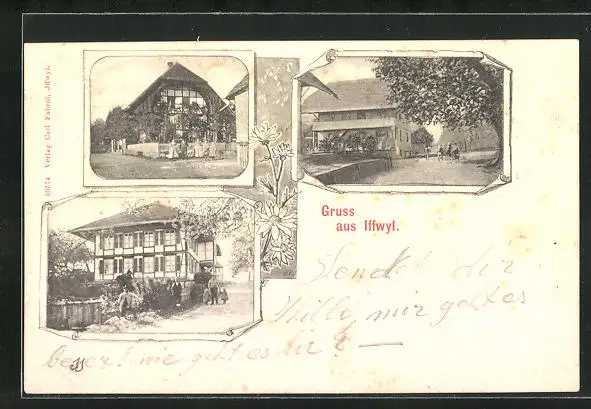 59774 Verlag Carl Fahrni, Jffwyl.
Gruss
aus Iffwyl.
Sendet dir
Hille mir geht es
besser! wie geht es dir? —